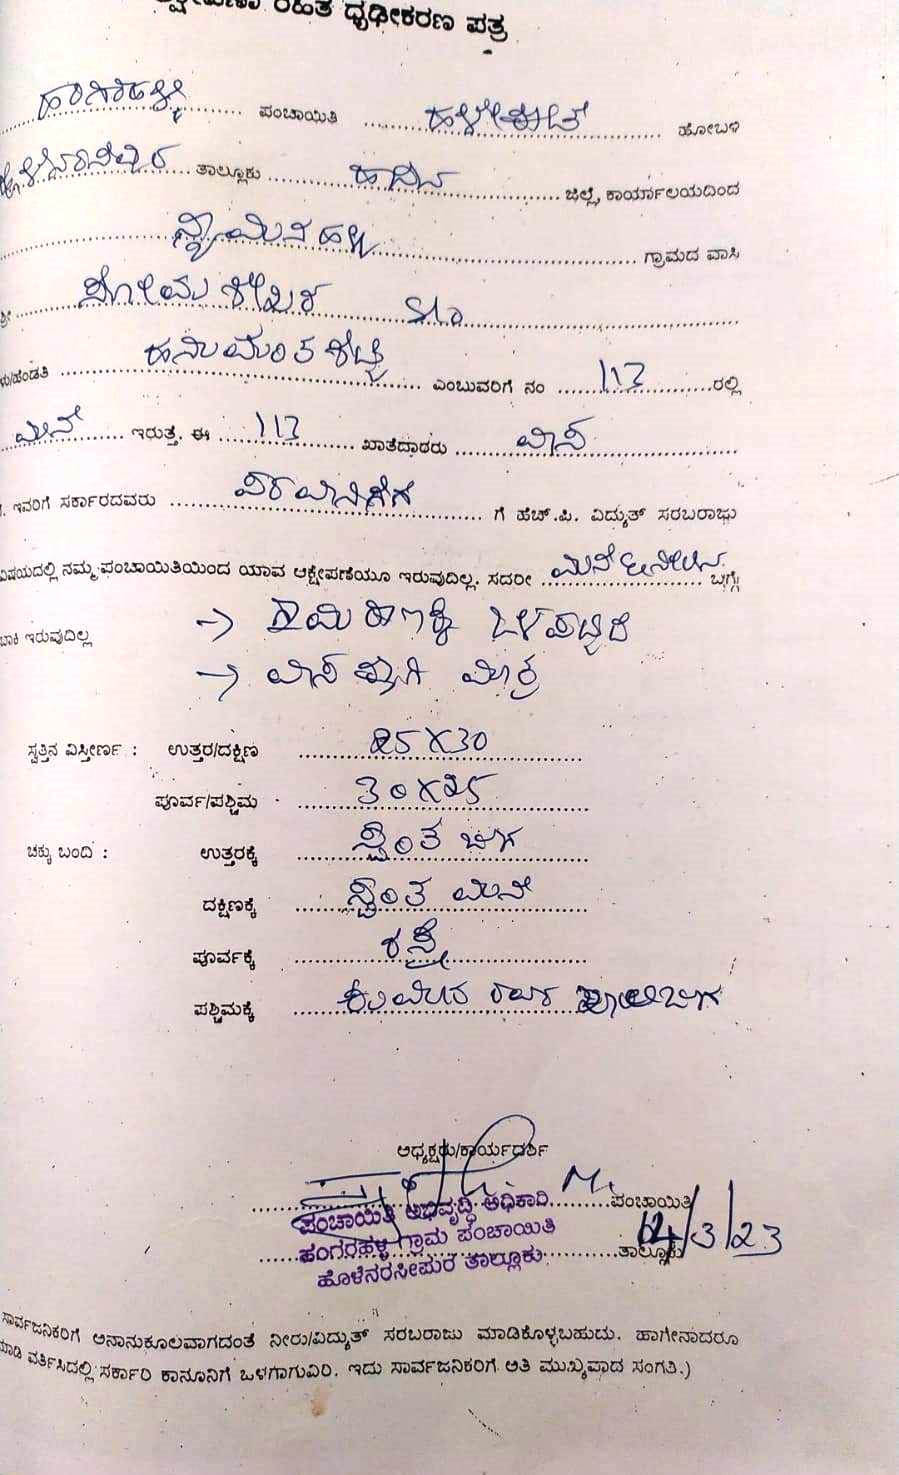 ರಹಿತ ಧೃಢೀಕರಣ ಪತ್ರ
ಪಂಚಾಯಿತಿ ಹಳೇಕೋಟೆ ಹೋಬಳಿ
ಹೊಳೆನರಸೀಪುರ ತಾಲ್ಲೂಕು ಹಾಸನ ಜಿಲ್ಲೆ, ಕಾರ್ಯಾಲಯದಿಂದ
ಗ್ರಾಮದ ವಾಸಿ
ಶ್ರೀ ಸೋಮಶೇಖರ S/o
ಳು/ಹೆಂಡತಿ ಹನುಮಂತಶೆಟ್ಟಿ ಎಂಬುವರಿಗೆ ನಂ 113 ರಲ್ಲಿ
ಮನೆ ಇರುತ್ತೆ. ಈ 113 ಖಾತೆದಾರರು ವಾಸ
ಇವರಿಗೆ ಸರ್ಕಾರದವರು ಪರವಾನಿಗೆಗೆ ಗೆ ಹೆಚ್.ಪಿ. ವಿದ್ಯುತ್ ಸರಬರಾಜು
ವಿಷಯದಲ್ಲಿ ನಮ್ಮ ಪಂಚಾಯಿತಿಯಿಂದ ಯಾವ ಆಕ್ಷೇಪಣೆಯೂ ಇರುವುದಿಲ್ಲ. ಸದರೀ ಬಗ್ಗೆ
ಬಾಕಿ ಇರುವುದಿಲ್ಲ → ಒಳಪಟ್ಟಿದೆ
→ ವಾಸಕ್ಕಾಗಿ ಮಾತ್ರ
ಸ್ವತ್ತಿನ ವಿಸ್ತೀರ್ಣ : ಉತ್ತರ/ದಕ್ಷಿಣ 25X30
ಪೂರ್ವ/ಪಶ್ಚಿಮ 30X25
ಚಕ್ಕು ಬಂದಿ : ಉತ್ತರಕ್ಕೆ ಸ್ವಂತ ಜಾಗ
ದಕ್ಷಿಣಕ್ಕೆ ಸ್ವಂತ ಮನೆ
ಪೂರ್ವಕ್ಕೆ ರಸ್ತೆ
ಪಶ್ಚಿಮಕ್ಕೆ
ಅಧ್ಯಕ್ಷರು/ಕಾರ್ಯದರ್ಶಿ
ಪಂಚಾಯಿತಿ
ಪಂಚಾಯಿತಿ ಅಭಿವೃದ್ಧಿ ಅಧಿಕಾರಿ
ಹಂಗರಹಳ್ಳಿ ಗ್ರಾಮ ಪಂಚಾಯಿತಿ
ಹೊಳೆನರಸೀಪುರ ತಾಲ್ಲೂಕು
ತಾಲ್ಲೂಕು 14/3/23
ಸಾರ್ವಜನಿಕರಿಗೆ ಅನಾನುಕೂಲವಾಗದಂತೆ ನೀರು/ವಿದ್ಯುತ್ ಸರಬರಾಜು ಮಾಡಿಕೊಳ್ಳಬಹುದು. ಹಾಗೇನಾದರೂ
ಮಾಡಿ ವರ್ತಿಸಿದಲ್ಲಿ ಸರ್ಕಾರಿ ಕಾನೂನಿಗೆ ಒಳಗಾಗುವಿರಿ. ಇದು ಸಾರ್ವಜನಿಕರಿಗೆ ಅತಿ ಮುಖ್ಯವಾದ ಸಂಗತಿ.)